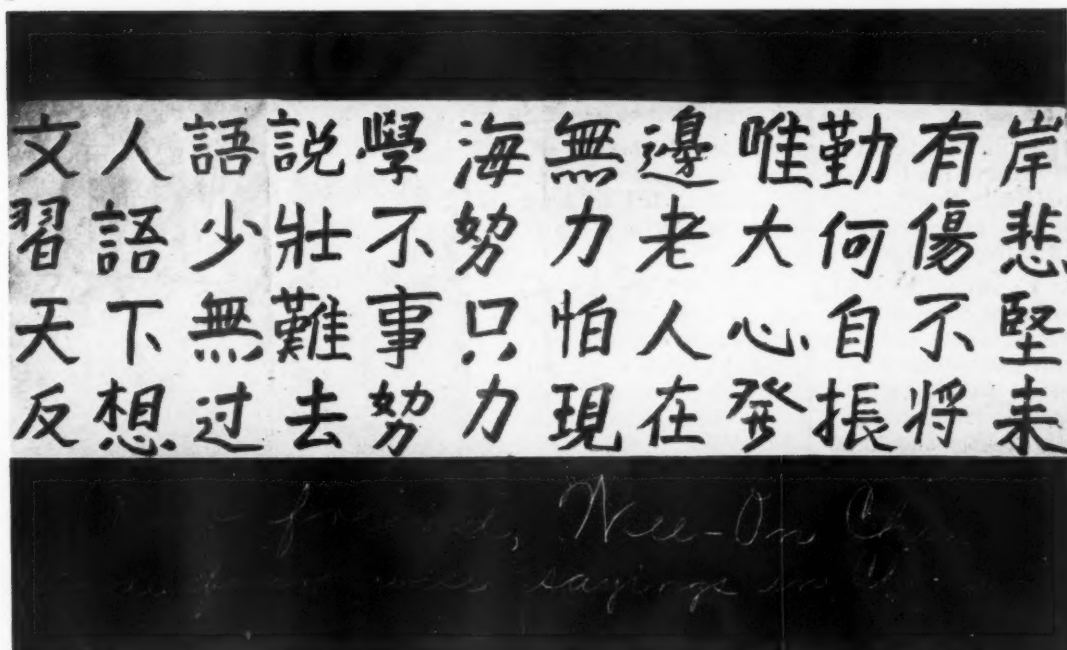 文人語説學海無邊唯勤有岸
習語少壯不努力老大何傷悲
天下無難事只怕人心自不堅
反想过去努力現在発振将来
friend, Wee-On
sayings in